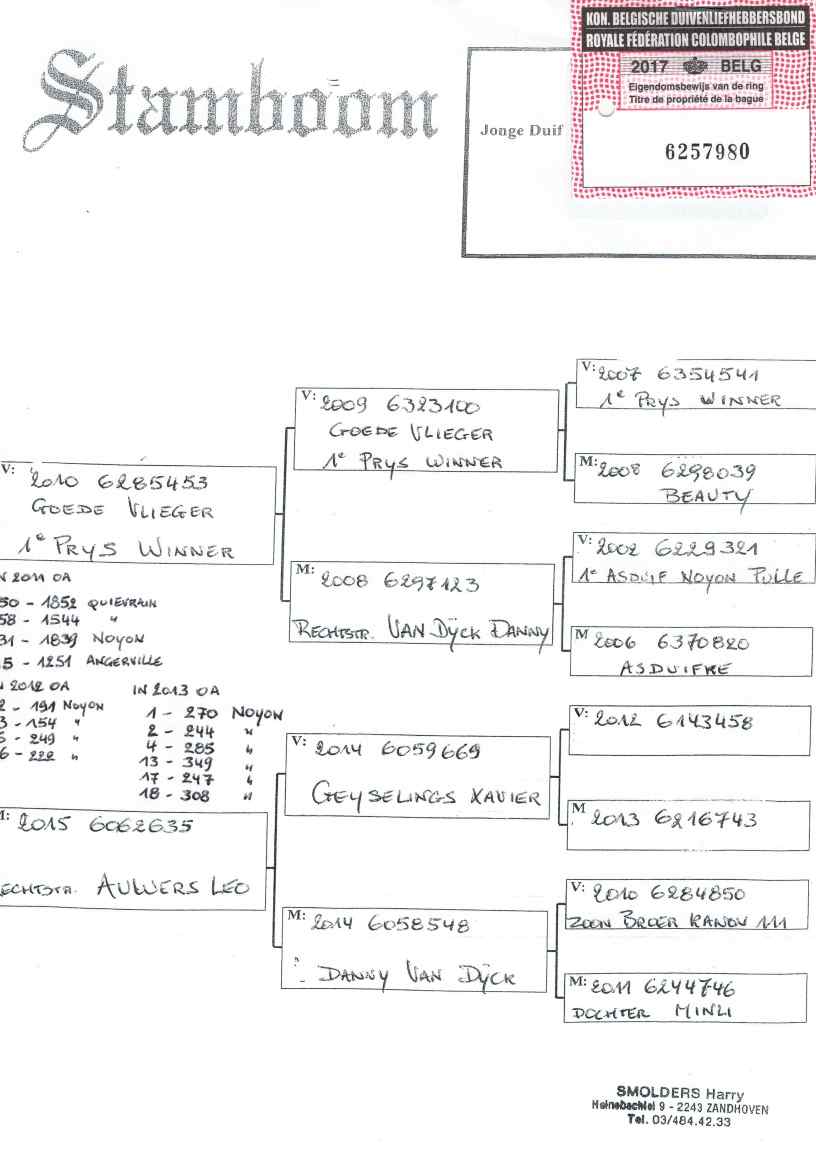 KON. BELGISCHE DUIVENLIEFHEBBERSBOND
ROYALE FÉDÉRATION COLOMBOPHILE BELGE
2017 BELG
Eigendomsbewijs van de ring
Titre de propriété de la bague
6257980
Stamboom
Jonge Duif
V: 2007 6354541
1e PRYS WINNER
V: 2009 6323100
GOEDE VLIEGER
1e PRYS WINNER
M: 2008 6298039
BEAUTY
V: 2010 6285453
GOEDE VLIEGER
1e PRYS WINNER
V: 2002 6229321
1e ASDUIF NOYON PULLE
M: 2008 6297123
RECHTSTR. VAN DŸCK DANNY
M 2006 6370820
ASDUIFKE
N 2011 OA
50 - 1852 QUIEVRAIN
58 - 1544 "
31 - 1839 NOYON
5 - 1251 ANGERVILLE
N 2012 OA
2 - 191 NOYON
3 - 154 "
5 - 249 "
6 - 222 "
IN 2013 OA
1 - 270 NOYON
2 - 244 "
4 - 285 "
13 - 349 "
17 - 247 "
18 - 308 "
V: 2012 6143458
V: 2014 6059669
GEYSELINGS XAVIER
M 2013 6216743
M: 2015 6062635
ECHTSTR. AUWERS LEO
V: 2010 6284850
ZOON BROER KANON 111
M: 2014 6058548
DANNY VAN DŸCK
M: 2011 6244746
DOCHTER MINLI
SMOLDERS Harry
9 - 2243 ZANDHOVEN
Tel. 03/484.42.33